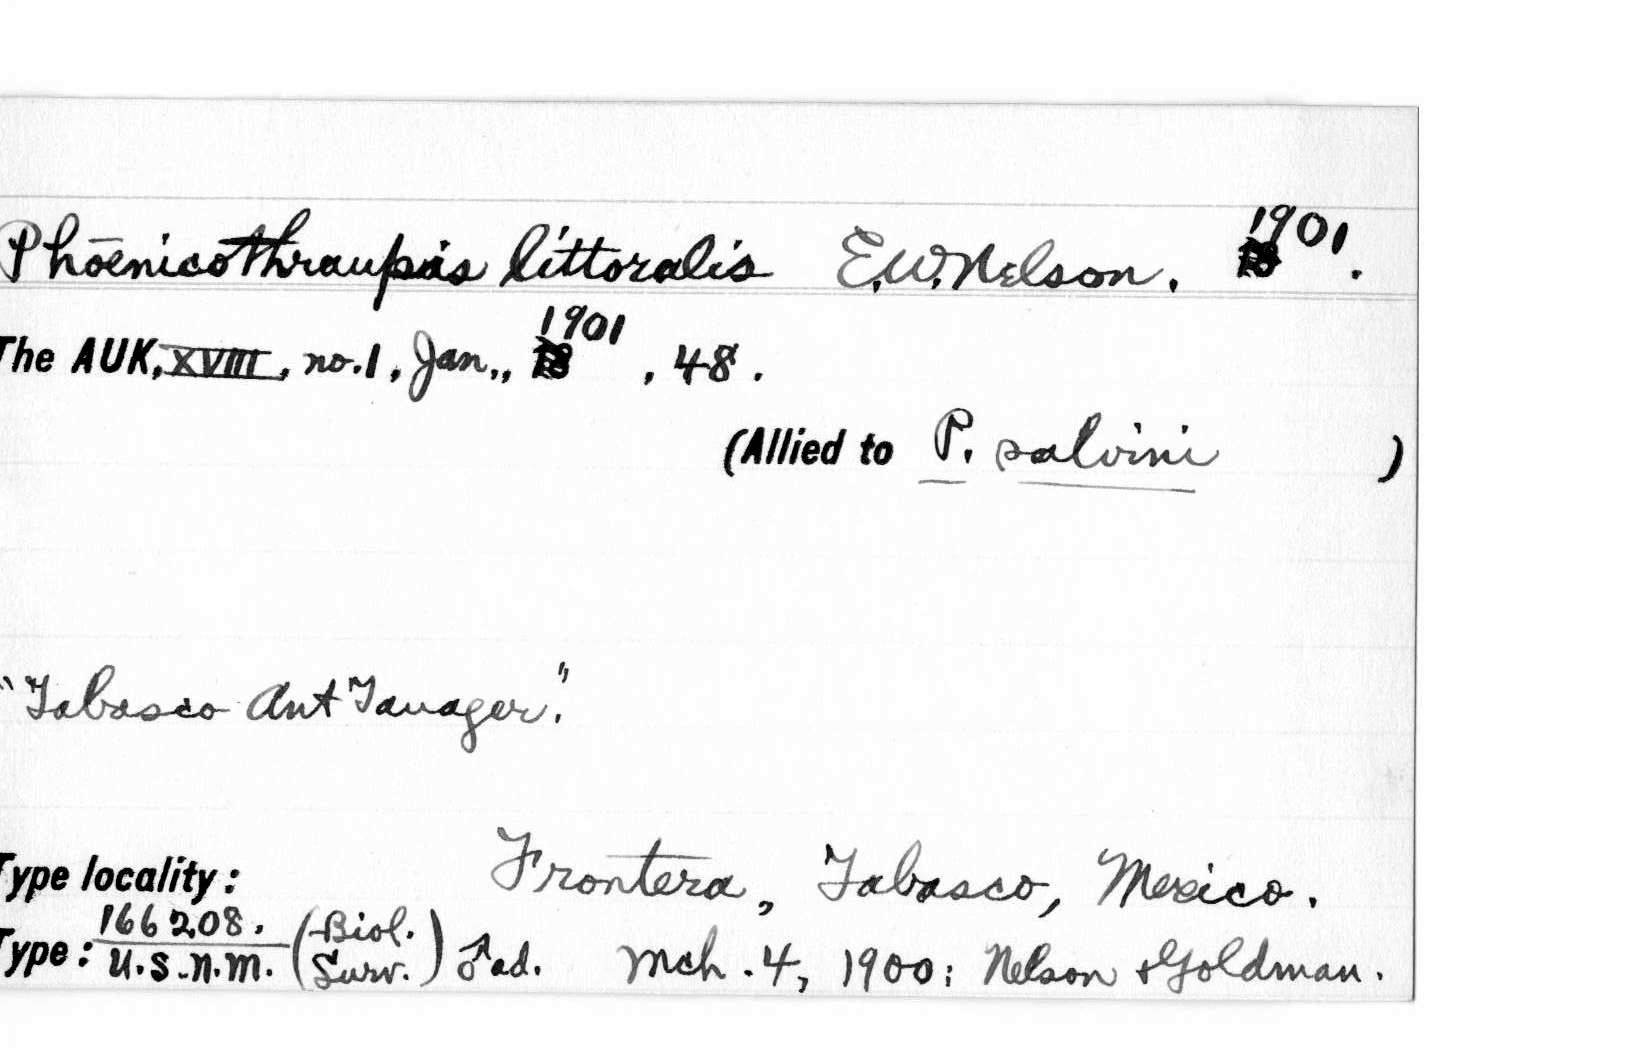 Phoenicothraupis littoralis E.W. Nelson. 1901.
The AUK, XVIII, no. 1, Jan., 1901, 48.
(Allied to P. salvini )
"Tabasco Ant Tanager."
Type locality: Frontera, Tabasco, Mexico.
Type: 166208. U.S.N.M. (Biol. Surv.) ♂ ad. Mch. 4, 1900; Nelson & Goldman.